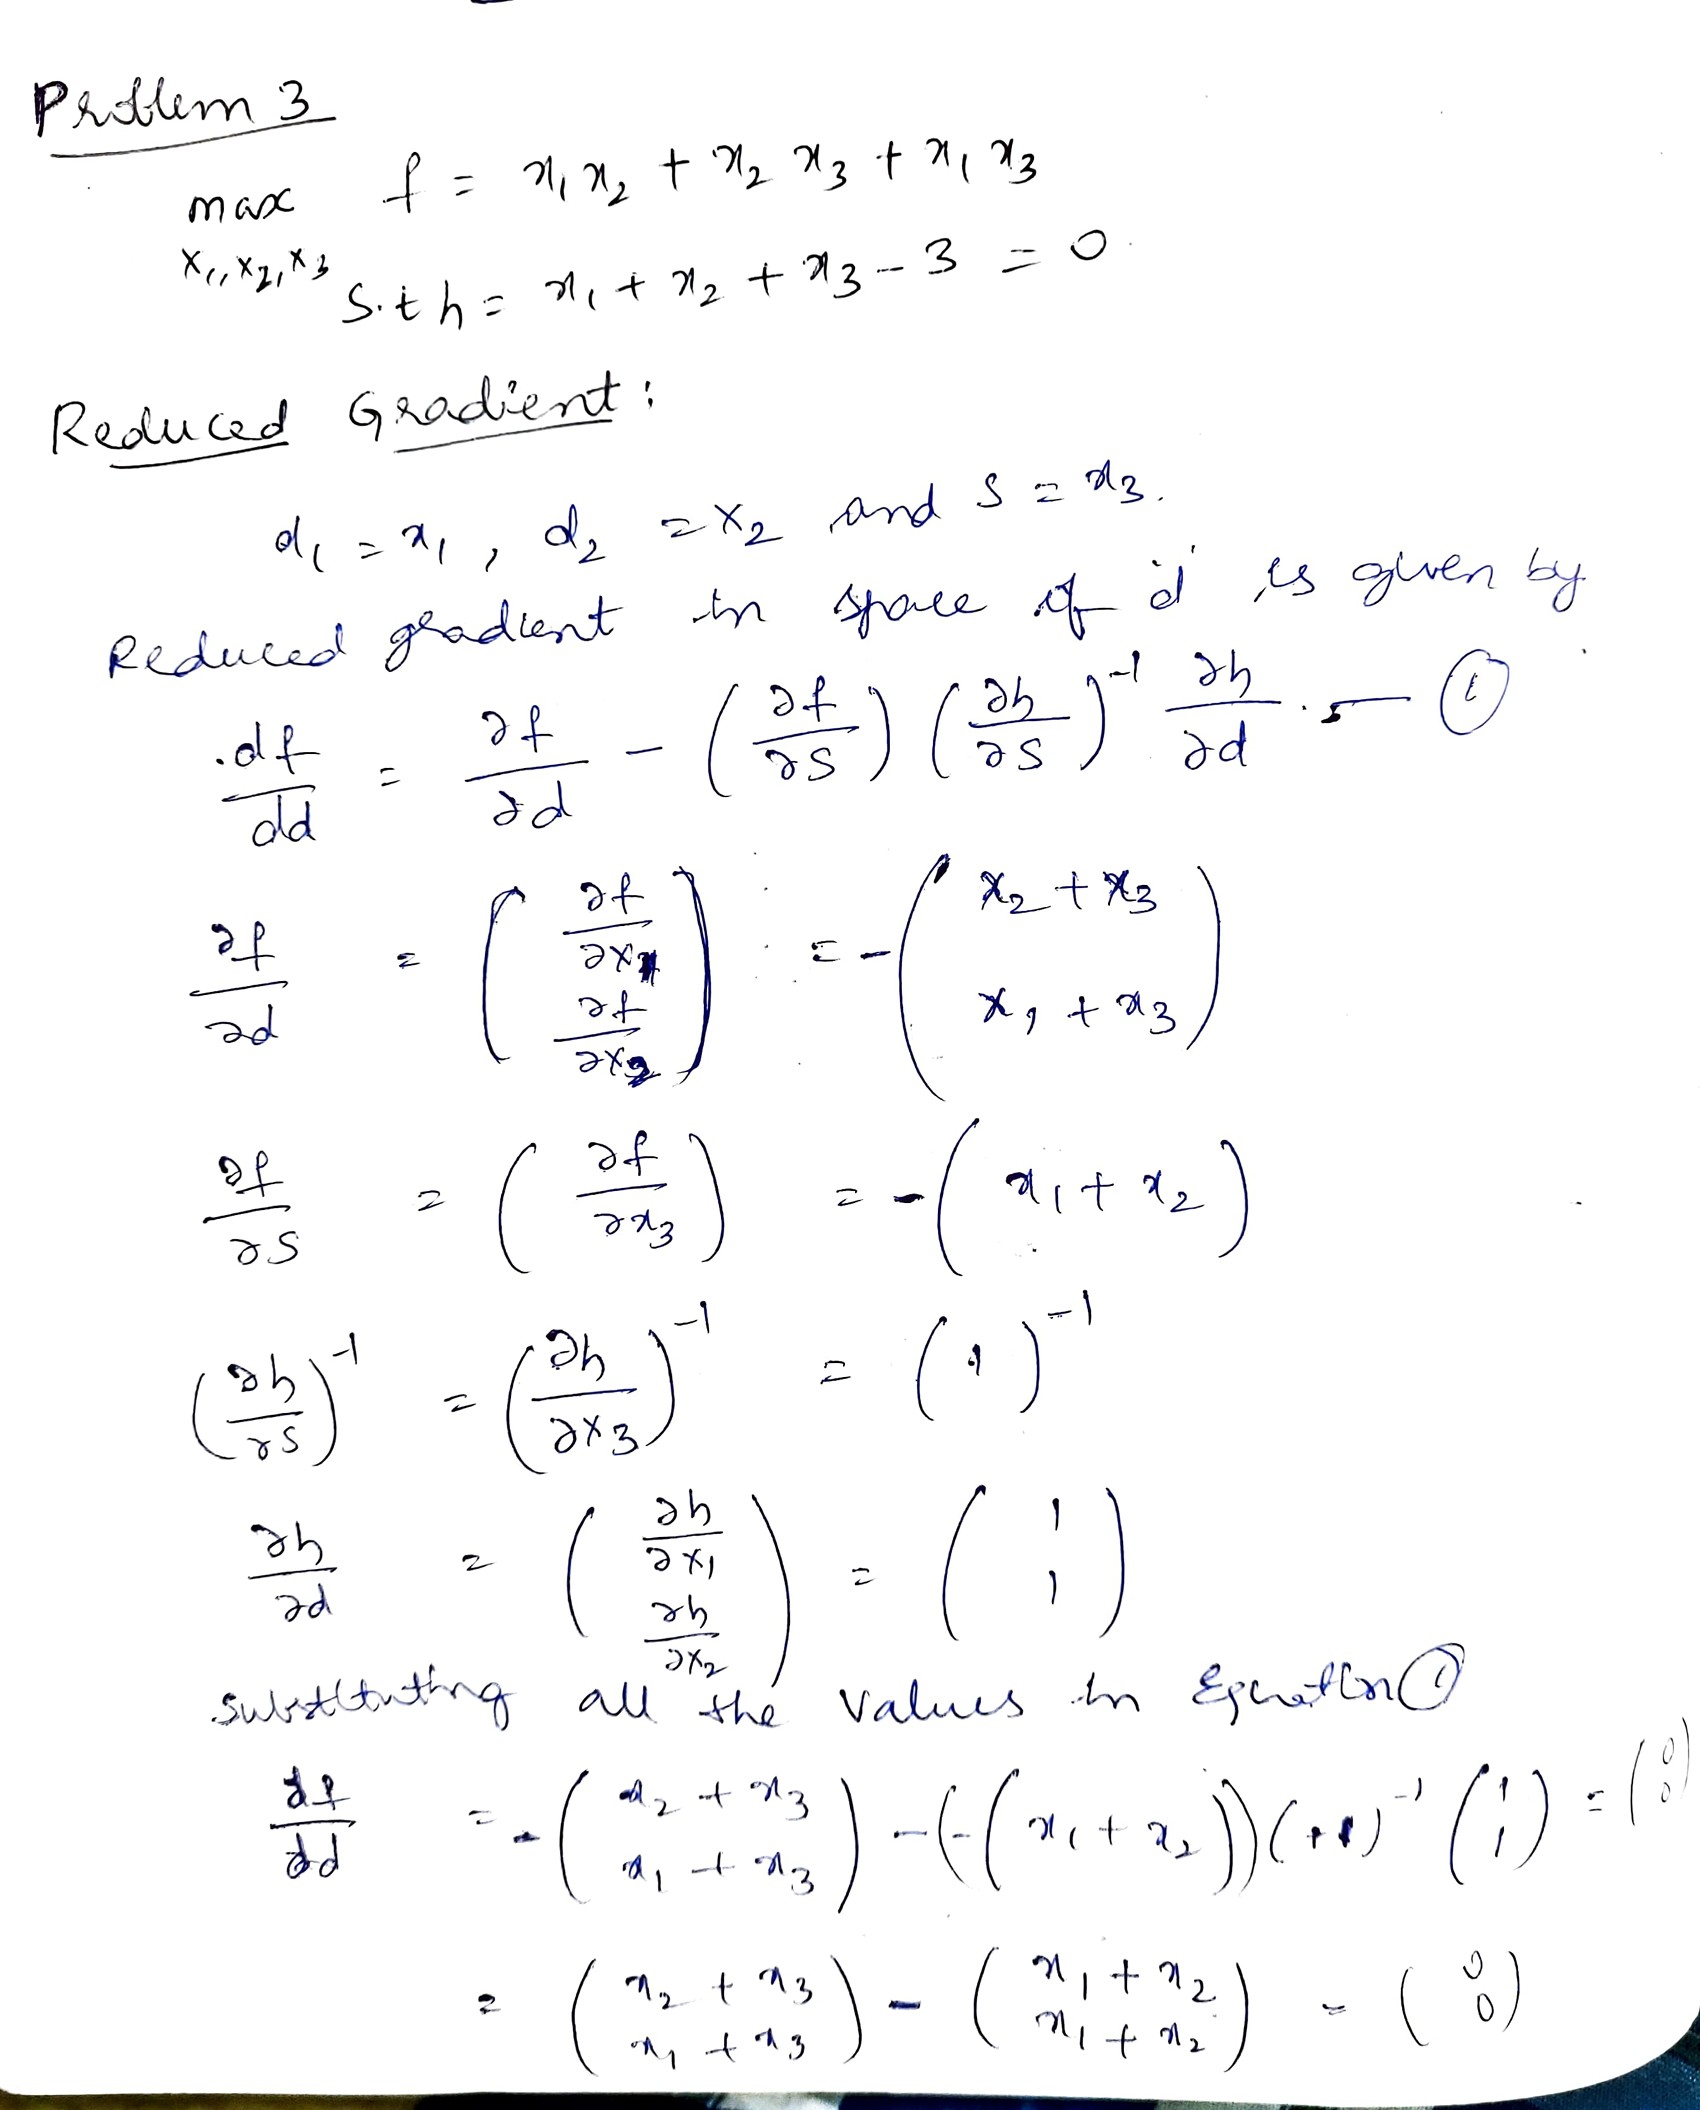 Problem 3
max f = x₁x₂ + x₂x₃ + x₁x₃
x₁,x₂,x₃
s.t h = x₁ + x₂ + x₃ - 3 = 0
Reduced Gradient:
d₁ = x₁, d₂ = x₂ and s = x₃.
Reduced gradient in space of 'd' is given by
df/dd = ∂f/∂d - (∂f/∂s) (∂h/∂s)⁻¹ ∂h/∂d. — ①
∂f/∂d = (∂f/∂x₁ ; ∂f/∂x₂) = -(x₂ + x₃ ; x₁ + x₃)
∂f/∂s = (∂f/∂x₃) = -(x₁ + x₂)
(∂h/∂s)⁻¹ = (∂h/∂x₃)⁻¹ = (1)⁻¹
∂h/∂d = (∂h/∂x₁ ; ∂h/∂x₂) = (1 ; 1)
substituting all the values in Equation ①
df/dd = -(x₂ + x₃ ; x₁ + x₃) - (-(x₁ + x₂))(+1)⁻¹ (1 ; 1) = (0 ; 0)
= (x₂ + x₃ ; x₁ + x₃) - (x₁ + x₂ ; x₁ + x₂) = (0 ; 0)